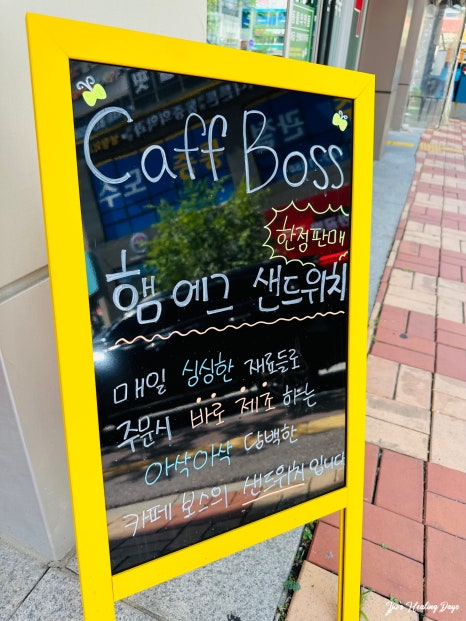 Caff Boss
한정판매
햄 에그 샌드위치
매일 싱싱한 재료들로
주문시 바로 제조 하는
아삭아삭 담백한
카페 보스의 샌드위치 입니다
Ju's Healing Days